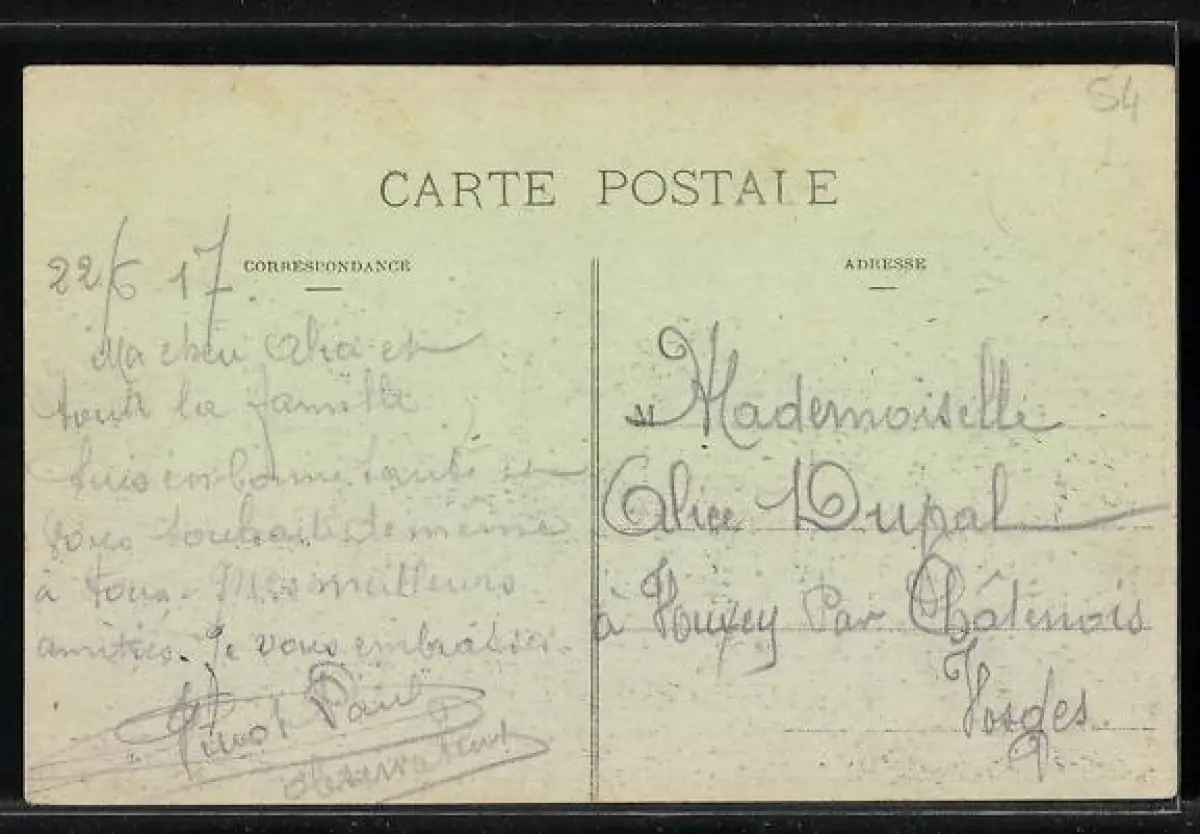 54
CARTE POSTALE
22/6 17
CORRESPONDANCE
Ma chère Alice et
toute la famille
suis en bonne santé et
vous souhaite de même
à tous. Mes meilleurs
amitiés. Je vous embrasse.
Pinot Paul
observateur
ADRESSE
M Mademoiselle
Alice Dupal
à Houxey Par Châtenois
Vosges